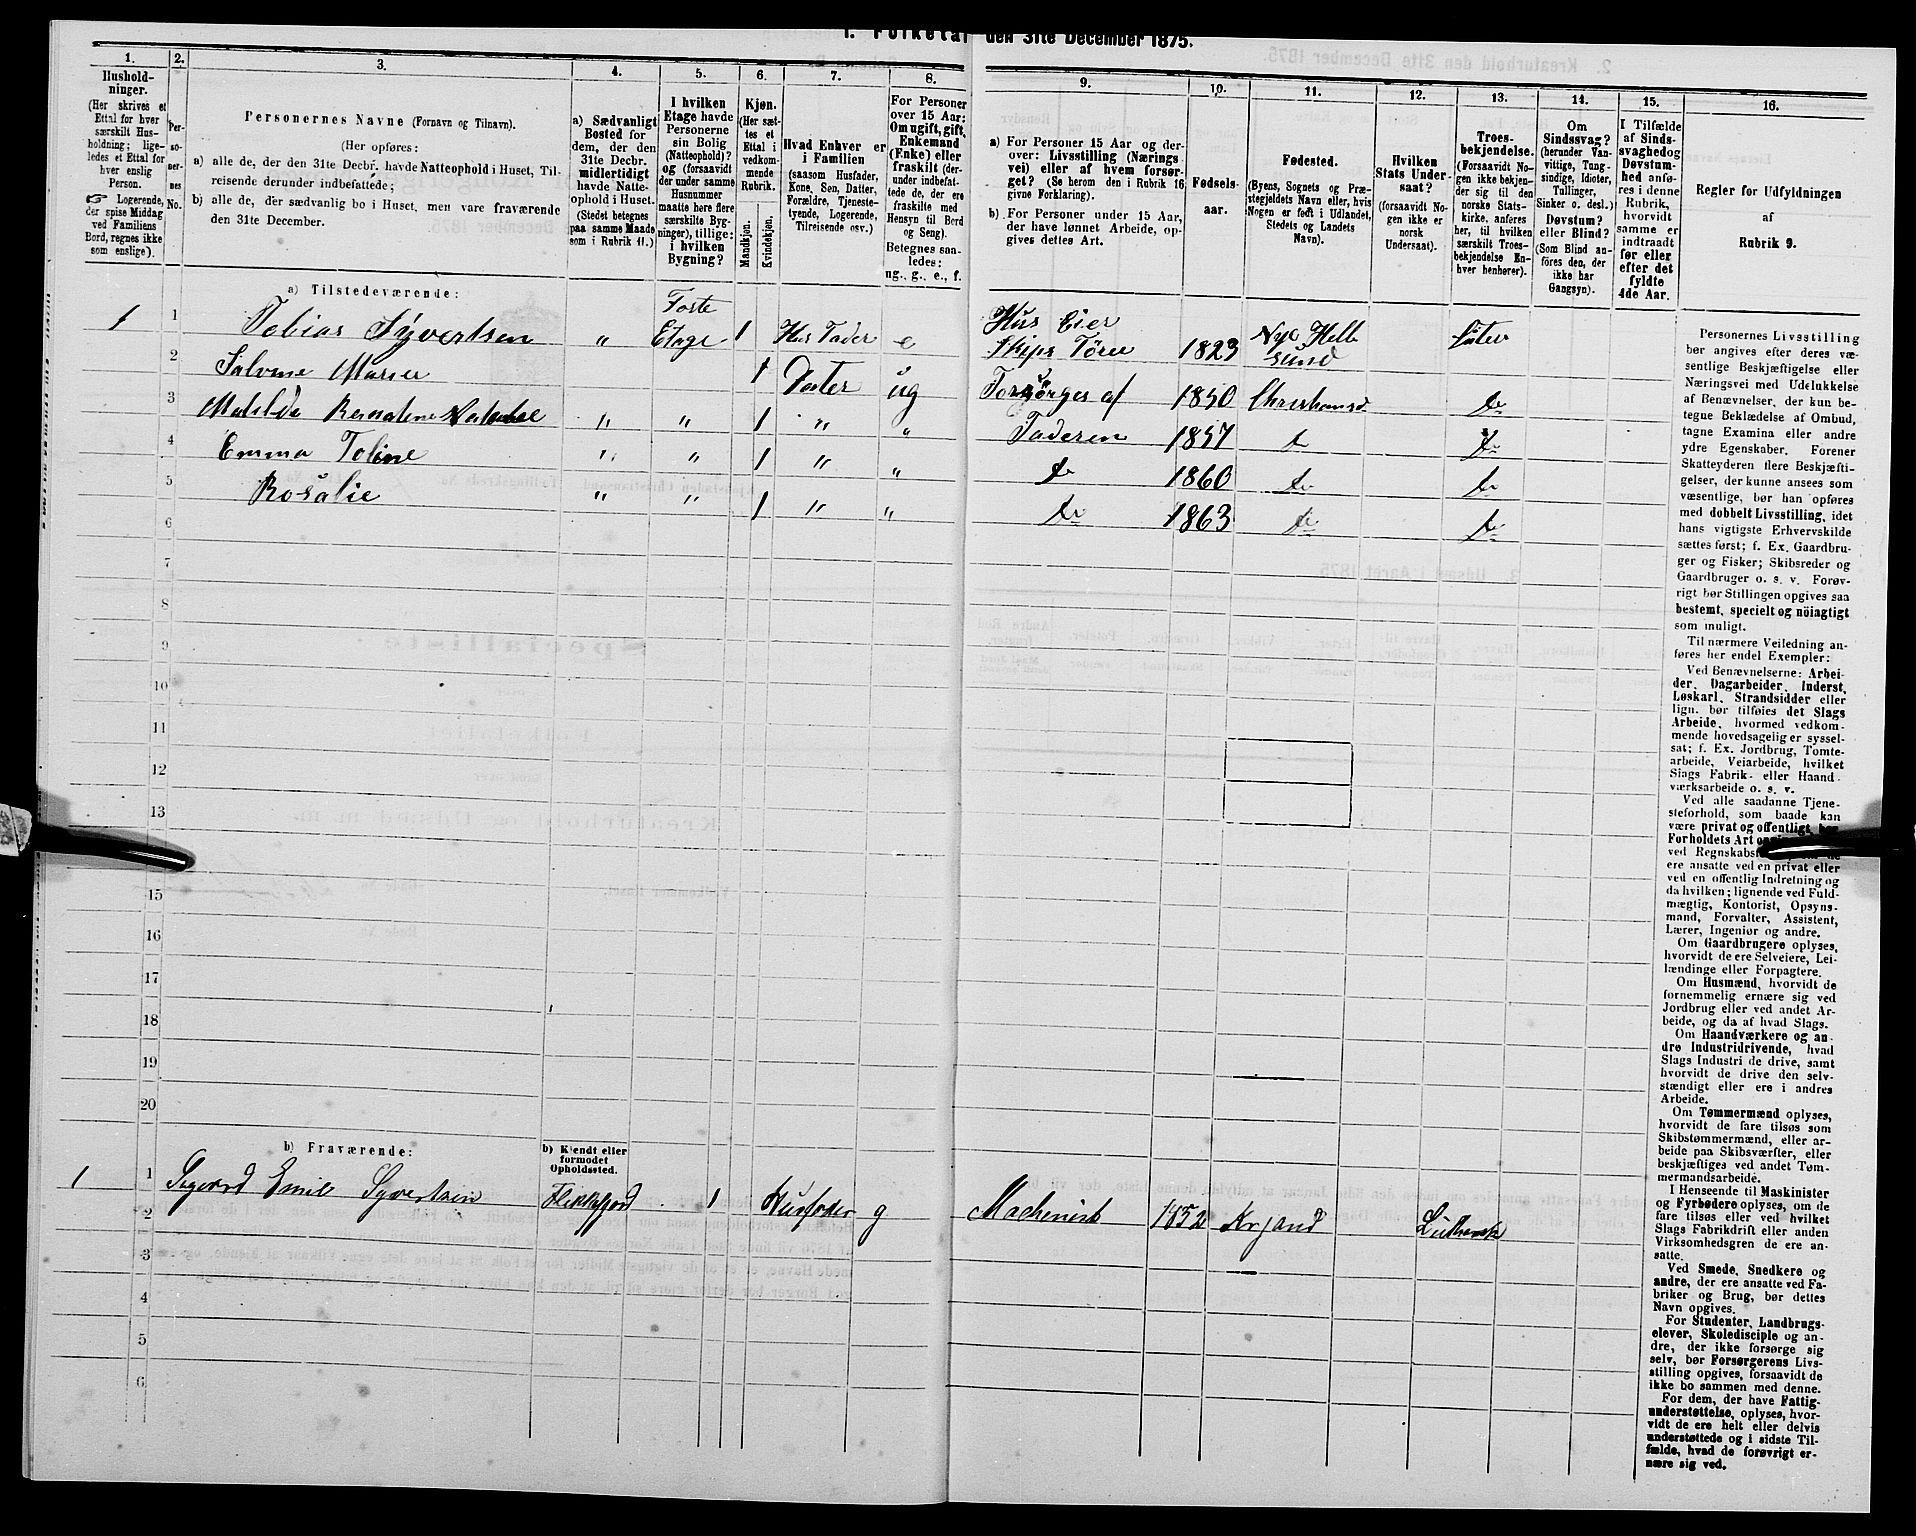 1. Folketal den 31te December 1875.
1.
Hushold-
ninger.
(Her skrives et
Ettal for hver
særskilt Hus-
holdning; lige-
ledes et Ettal for
hver enslig
Person.
Logerende,
der spise Middag
ved Familiens
Bord, regnes ikke
som enslige).
2.
Per-
so-
ner-
nes
No.
3.
Personernes Navne (Fornavn og Tilnavn).
(Her opføres:
a) alle de, der den 31te Decbr. havde Natteophold i Huset, Til-
reisende derunder indbefattede;
b) alle de, der sædvanlig bo i Huset, men vare fraværende
den 31te December.
4.
a) Sædvanligt
Bosted for
dem, der den
31te Decbr.
midlertidigt
havde Natte-
ophold i Huset.
(Stedet betegnes
paa samme Maade
som i Rubrik 11.)
5.
I hvilken
Etage havde
Personerne
sin Bolig
(Natteophold)?
og (forsaavidt
der under samme
Husnummer
maatte høre flere
særskilte Byg-
ninger), tillige:
i hvilken
Bygning?
6.
Kjøn.
(Her sæt-
tes et
Ettal i
vedkom-
mende
Rubrik.
Mandkjøn.
Kvindekjøn.
7.
Hvad Enhver er
i Familien
(saasom Husfader,
Kone, Søn, Datter,
Forældre, Tjeneste-
tyende, Logerende,
Tilreisende osv.)
8.
For Personer
over 15 Aar:
Om ugift, gift,
Enkemand
(Enke) eller
fraskilt (der-
under indbefat-
tede de, der ere
fraskilte med
Hensyn til Bord
og Seng).
Betegnes saa-
ledes:
ug., g., e., f.
9.
a) For Personer 15 Aar og der-
over: Livsstilling (Nærings-
vei) eller af hvem forsør-
get? (Se herom den i Rubrik 16
givne Forklaring).
b) For Personer under 15 Aar,
der have lønnet Arbeide, op-
gives dettes Art.
10.
Fødsels-
aar.
11.
Fødested.
(Byens, Sognets og Præ-
stegjeldets Navn eller, hvis
Nogen er født i Udlandet,
Stedets og Landets
Navn).
12.
Hvilken
Stats Under-
saat?
(forsaavidt No-
gen ikke er
norsk
Undersaat).
13.
Troes-
bekjendelse.
(Forsaavidt No-
gen ikke bekjen-
der sig til den
norske Stats-
kirke, anføres
her, til hvilken
særskilt Troes-
bekjendelse En-
hver henhører).
14.
Om
Sindssvag?
(herunder Van-
vittige, Tung-
sindige, Idioter,
Tullinger,
Sinker o. desl.)
Døvstum?
eller Blind?
(Som Blind an-
føres den, der
ikke har
Gangsyn).
15.
I Tilfælde
af Sinds-
svaghed og
Døvstum-
hed anfø-
res i denne
Rubrik,
hvorvidt
samme er
indtraadt
før eller
efter det
fyldte
4de Aar.
16.
Regler for Udfyldningen
af
Rubrik 9.
a) Tilstedeværende:
1 1 Tobias Syvertsen " Første Etage 1 Hus Fader e Hus Eier Skips Fører 1823 Nye Hellesund Luter
2 Salvine Marie 1 Dater ug Forsørges af 1850 Christiansd do
3 Matilda " " 1 " " Faderen 1857 do do
4 Emma Toline " " 1 " " do 1860 do do
5 Rosalie " " 1 " " do 1863 do do
6
7
8
9
10
11
12
13
15
16
17
18
19
20
b) Fraværende:
b) Kjendt eller
formodet
Opholdssted.
1 1 Sigvard Emil Syvertsen Flekkefjord 1 Husfader g Machenist 1852 Krsand Luthersk
2
3
4
5
6
Personernes Livsstilling
bør angives efter deres væ-
sentlige Beskjæftigelse eller
Næringsvei med Udelukkelse
af Benævnelser, der kun be-
tegne Beklædelse af Ombud,
tagne Examina eller andre
ydre Egenskaber. Forener
Skatteyderen flere Beskjæfti-
gelser, der kunne ansees som
væsentlige, bør han opføres
med dobbelt Livsstilling, idet
hans vigtigste Erhvervskilde
sættes først; f. Ex. Gaardbru-
ger og Fisker; Skibsreder og
Gaardbruger o. s. v. Forøv-
rigt bør Stillingen opgives saa
bestemt, specielt og nöiagtigt
som muligt.
Til nærmere Veiledning an-
føres her endel Exempler:
Ved Benævnelserne: Arbei-
der, Dagarbeider, Inderst,
Løskarl, Strandsidder eller
lign. bør tilføies det Slags
Arbeide, hvormed vedkom-
mende hovedsagelig er syssel-
sat; f. Ex. Jordbrug, Tomte-
arbeide, Veiarbeide, hvilket
Slags Fabrik- eller Haand-
værksarbeide o. s. v.
Ved alle saadanne Tjene-
steforhold, som baade kan
være privat og offentligt, bør
Forholdets Art
ved
ere ansatte ved en privat eller
ved en offentlig Indretning og
da hvilken; lignende ved Fuld-
mægtig, Kontorist, Opsyns-
mand, Forvalter, Assistent,
Lærer, Ingeniør og andre.
Om Gaardbrugere oplyses,
hvorvidt de ere Selveiere, Lei-
lændinge eller Forpagtere.
Om Husmænd, hvorvidt de
fornemmelig ernære sig ved
Jordbrug eller ved andet Ar-
beide, og da af hvad Slags.
Om Haandværkere og an-
dre Industridrivende, hvad
Slags Industri de drive, samt
hvorvidt de drive den selv-
stændigt eller ere i andres
Arbeide.
Om Tømmermænd oplyses,
hvorvidt de fare tilsøs som
Skibstømmermænd, eller ar-
beide paa Skibsværfter, eller
beskjæftiges ved andet Tøm-
mermandsarbeide.
I Henseende til Maskinister
og Fyrbødere oplyses, om de
fare tilsøs eller ved hvilket
Slags Fabrikdrift eller anden
Virksomhedsgren de ere an-
satte.
Ved Smede, Snedkere og
andre, der ere ansatte ved Fa-
briker og Brug, bør dettes
Navn opgives.
For Studenter, Landbrugs-
elever, Skoledisciple og an-
dre, der ikke forsørge sig
selv, bør Forsørgerens Livs-
stilling opgives, forsaavidt de
ikke bo sammen med denne.
For dem, der have Fattig-
understøttelse, oplyses, hvor-
vidt de ere helt eller delvis
understøttede og i sidste Til-
fælde, hvad de forøvrigt er-
nære sig ved.